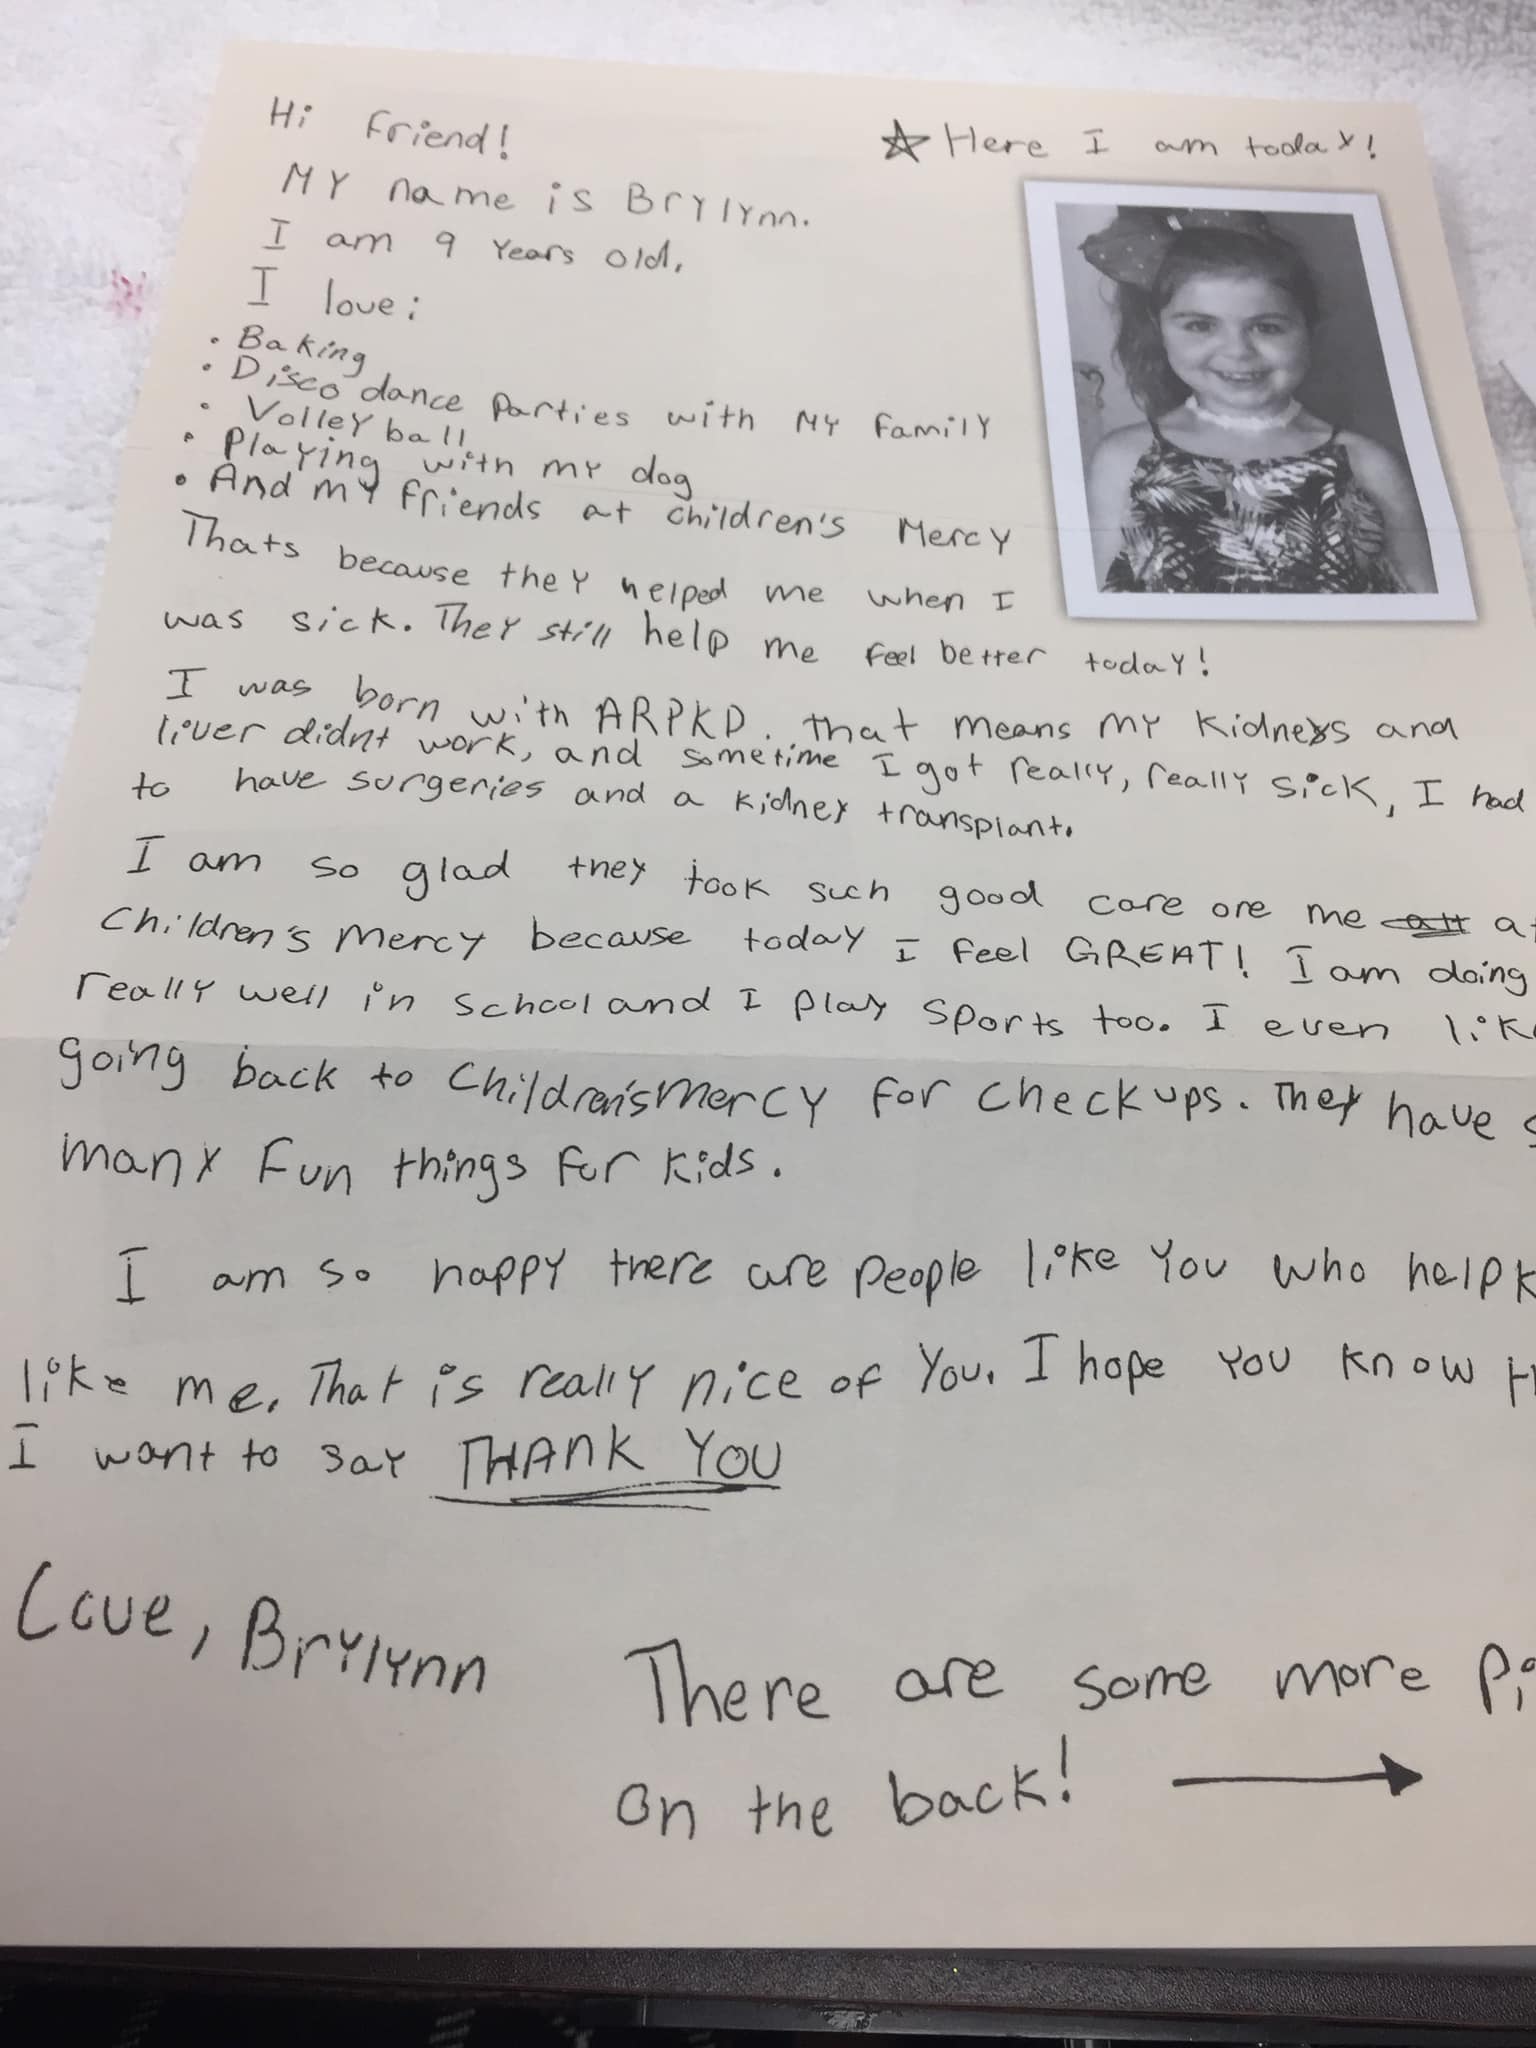 Hi friend!
☆ Here I am today!
My name is Brylynn.
I am 9 years old.
I love:
• Baking
• Disco dance parties with my family
• Volleyball
• Playing with my dog
• And my friends at children's Mercy
Thats because they helped me when I
was sick. They still help me feel better today!
I was born with ARPKD. that means my kidneys and
liver didnt work, and sometime I got really, really sick, I had
to have surgeries and a kidney transplant.
I am so glad they took such good care ore me at
Children's Mercy because today I feel GREAT! I am doing
really well in school and I play sports too. I even like
going back to Children's Mercy for checkups. They have
many fun things for kids.
I am so happy there are people like you who help
like me. That is really nice of you. I hope you know
I want to say THANK YOU
Love, Brylynn
There are some more
on the back! →